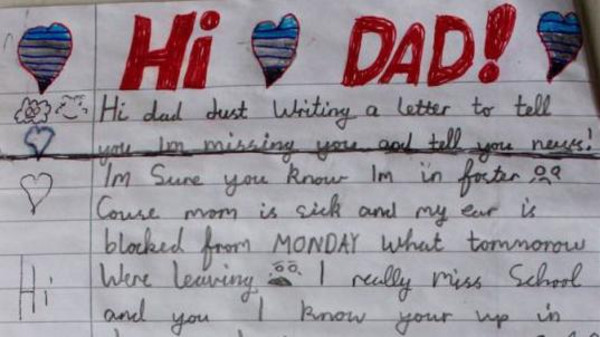 Hi DAD!
Hi dad dust Writing a letter to tell
you Im missing you and tell you news!
Im Sure you know Im in foster
Couse mom is sick and my ear is
blocked from MONDAY What tommorow
Were leaving I really miss School
Hi
and you I know your up in